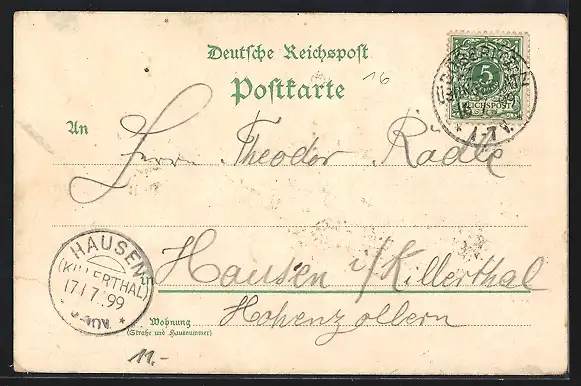 Deutsche Reichspost
16
Postkarte
5
REICHSPOST
An
Herrn Theodor Rädle
HAUSEN
(KILLERTHAL)
17/7 99
in Hausen i/Killerthal
Hohenzollern
Wohnung
(Straße und Hausnummer)
11.-